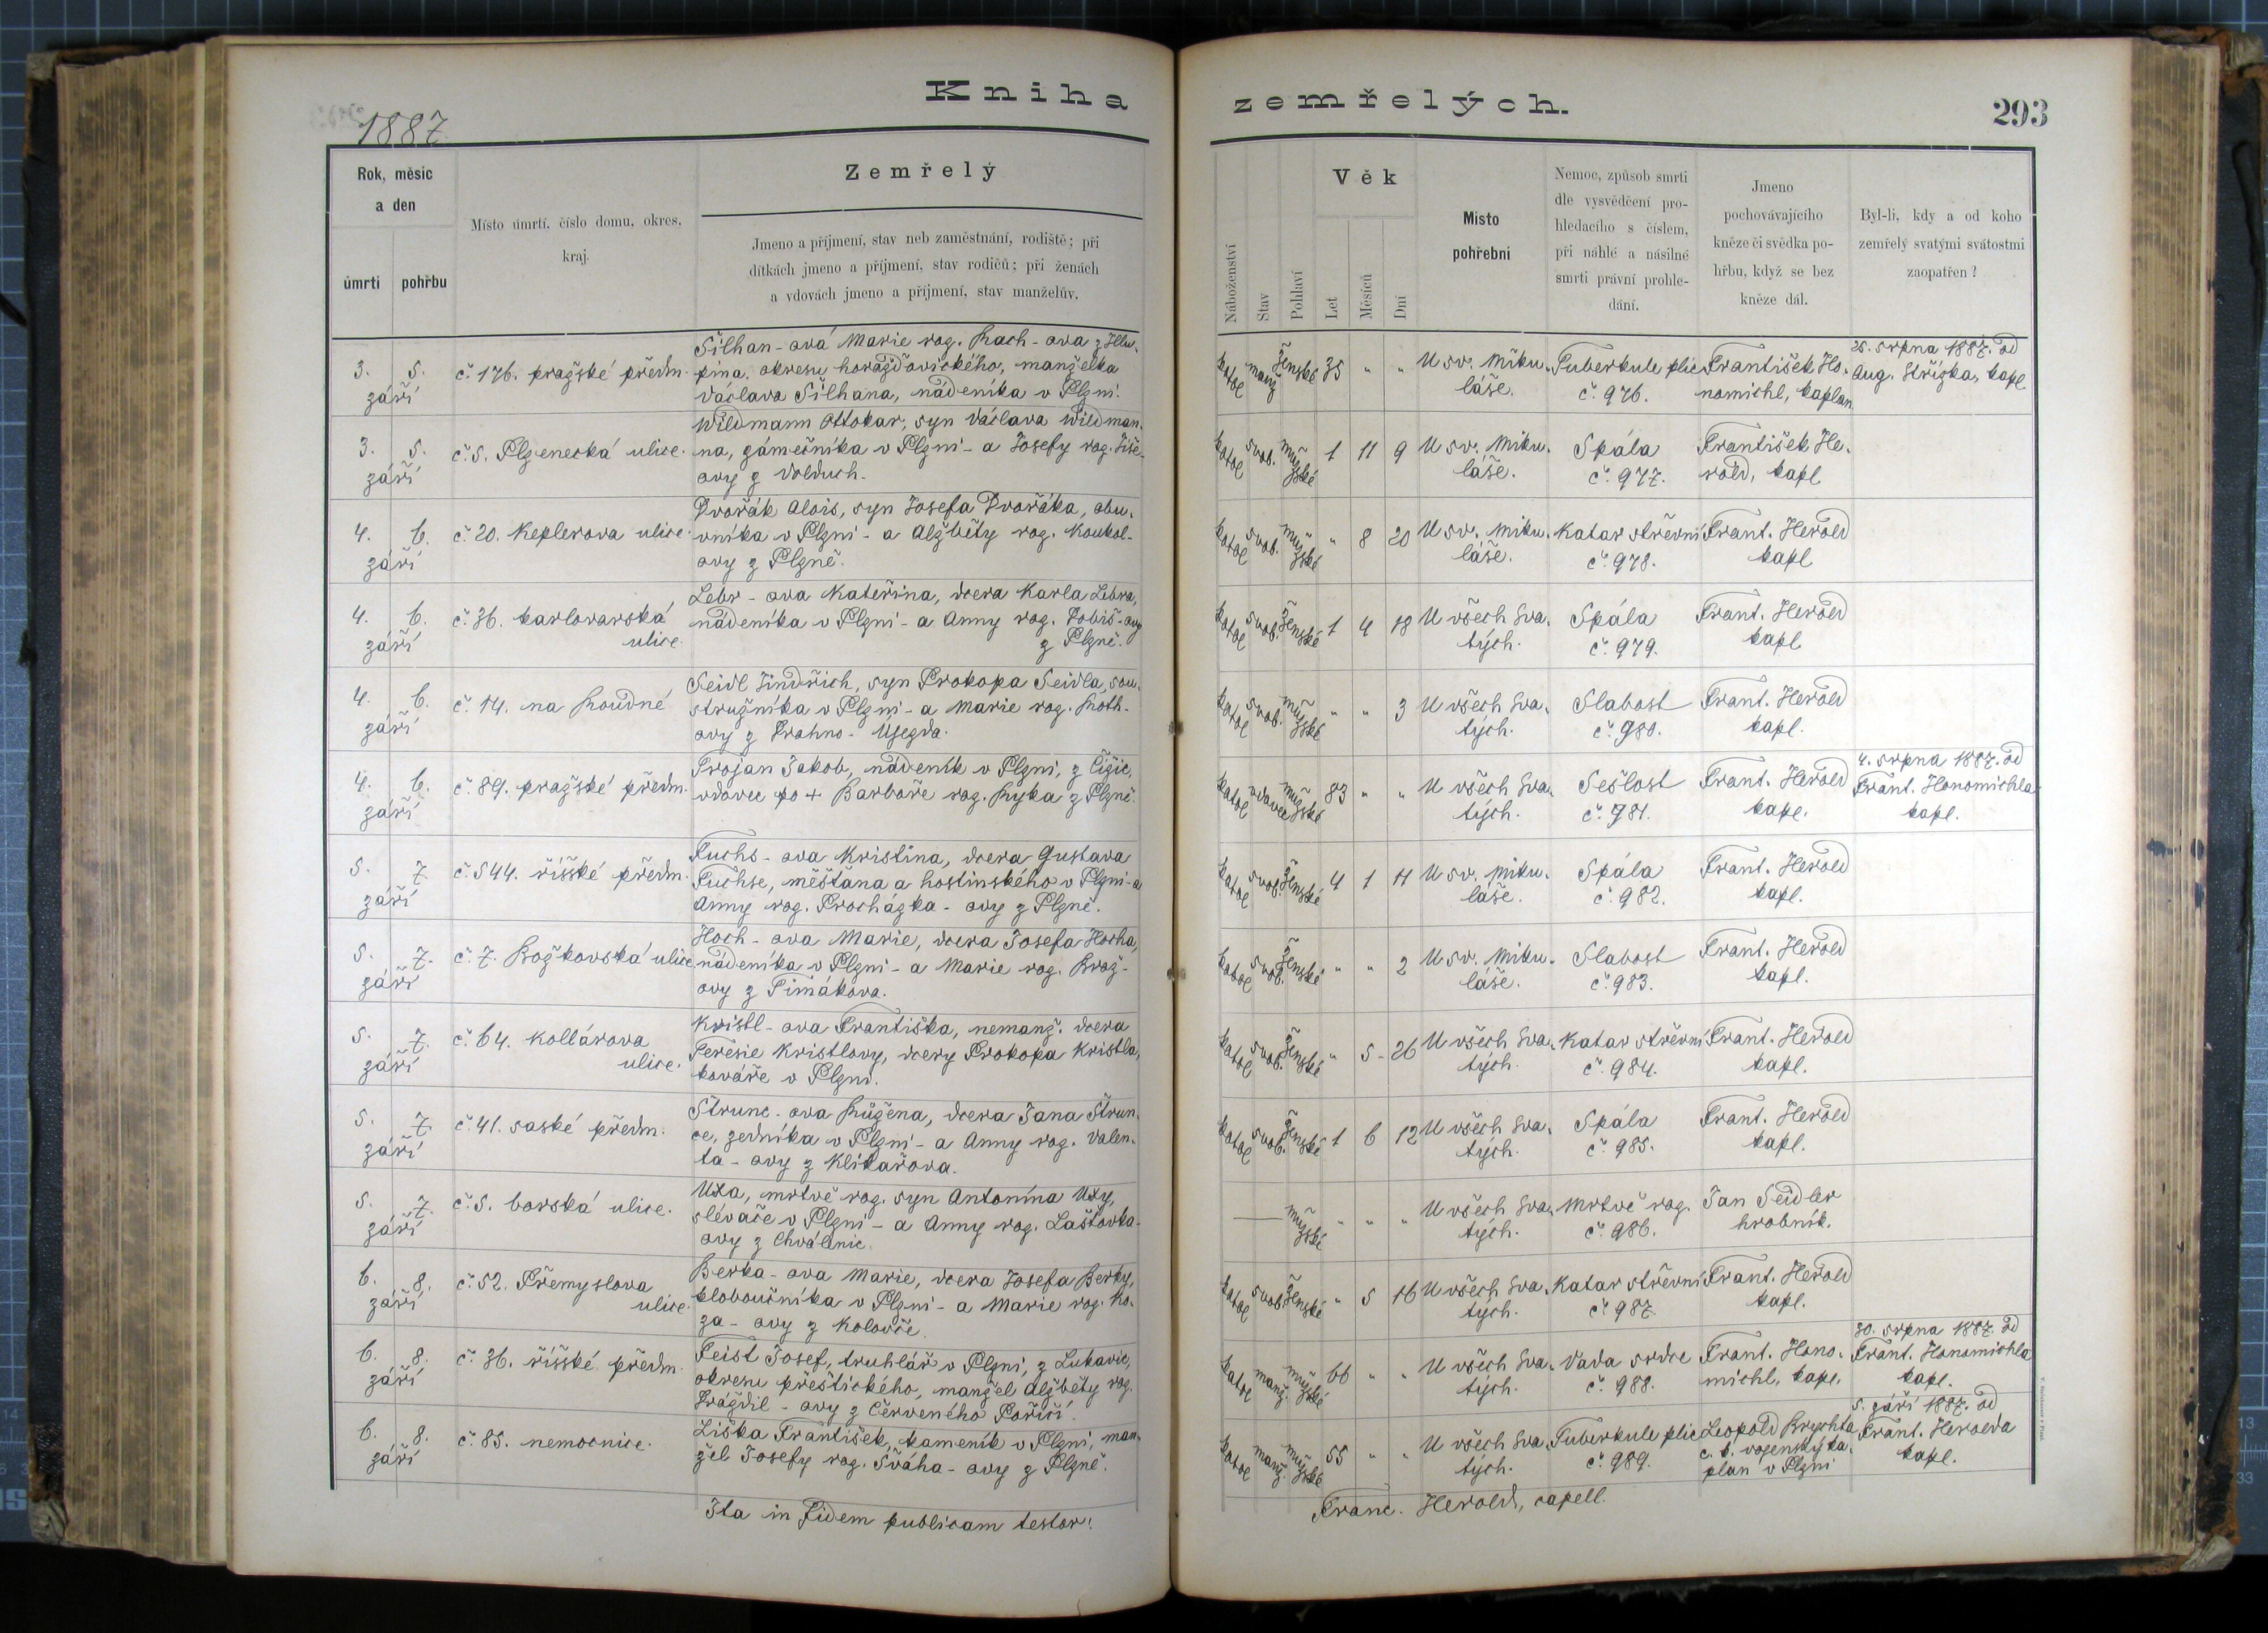 1887
Kniha zemřelých.
293
Rok, měsíc
a den
úmrtí
pohřbu
Místo úmrtí, číslo domu, okres,
kraj.
Zemřelý
Jmeno a příjmení, stav neb zaměstnání, rodiště; při
dítkách jmeno a příjmení, stav rodičů; při ženách
a vdovách jmeno a příjmení, stav manželův.
Náboženství
Stav
Pohlaví
Věk
Let
Měsíců
Dní
Místo
pohřební
Nemoc, způsob smrti
dle vysvědčení pro-
hledacího s číslem,
při náhlé a násilné
smrti právní prohle-
dání.
Jmeno
pochovávajícího
kněze či svědka po-
hřbu, když se bez
kněze dál.
Byl-li, kdy a od koho
zemřelý svatými svátostmi
zaopatřen?
3. 5.
září
č. 176. pražské předm.
Šilhan-ová Marie roz. Rach-ova z Hlu-
pína, okresu horažďovického, manželka
Václava Šilhana, nádeníka v Plzni.
katol manž ženské 35 " "
U sv. Miku-
láše.
Tuberkule plic
č. 976.
František Ho-
nomichl, kaplan
25. srpna 1887. od
Aug. Střízka, kapl
3. 5.
září
č. 5. Plzenecká ulice.
Wildmann Ottokar, syn Václava Wildman-
na, zámečníka v Plzni - a Josefy roz. Šiše-
ovy z Volduch.
katol svob. mužské 1 11 9
U sv. Miku-
láše.
Spála
č. 977.
František He-
rold, kapl
4. 6.
září
č. 20. Keplerova ulice.
Dvořák Alois, syn Josefa Dvořáka, obu-
vníka v Plzni - a Alžběty roz. Koukol-
ovy z Plzně.
katol svob. mužské " 8 20
U sv. Miku-
láše.
Katar střevní
č. 978.
Frant. Herold
kapl
4. 6.
září
č. 36. karlovarská
ulice.
Lebr-ova Kateřina, dcera Karla Lebra,
nádeníka v Plzni - a Anny roz. Tobiš-ovy
z Plzně.
katol svob. ženské 1 4 18
U všech Sva-
tých.
Spála
č. 979.
Frant. Herold
kapl
4. 6.
září
č. 14. na Roudné
Seidl Jindřich, syn Prokopa Seidla, sou-
stružníka v Plzni - a Marie roz. Roth-
ovy z Drahno-Újezda.
katol svob. mužské " " 3
U všech Sva-
tých.
Slabost
č. 980.
Frant. Herold
kapl.
4. 6.
září
č. 89. pražské předm.
Trojan Jakob, nádeník v Plzni, z Čižic,
vdovec po + Barboře roz. Ryka z Plzně.
katol vdovec mužské 83 " "
U všech Sva-
tých.
Sešlost
č. 981.
Frant. Herold
kapl.
4. srpna 1887. od
Frant. Honomichla
kapl.
5. 7.
září
č. 544. říšské předm.
Fuchs-ova Kristina, dcera Gustava
Fuchse, měšťana a hostinského v Plzni - a
Anny roz. Procházka-ovy z Plzně.
katol svob. ženské 4 1 11
U sv. Miku-
láše.
Spála
č. 982.
Frant. Herold
kapl.
5. 7.
září
č. 7. Božkovská ulice
Hoch-ova Marie, dcera Josefa Hocha,
nádeníka v Plzni - a Marie roz. Brož-
ovy z Timákova.
katol svob. ženské " " 2
U sv. Miku-
láše.
Slabost
č. 983.
Frant. Herold
kapl.
5. 7.
září
č. 64. Kollárova
ulice.
Kristl-ova Františka, nemanž. dcera
Teresie Kristlovy, dcery Prokopa Kristla,
kováře v Plzni.
katol svob. ženské " 5 - 26
U všech Sva-
tých.
Katar střevní
č. 984.
Frant. Herold
kapl.
5. 7.
září
č. 41. saské předm.
Štrunc-ova Růžena, dcera Jana Štrun-
ce, zedníka v Plzni - a Anny roz. Valen-
ta-ovy z Klikařova.
katol svob. ženské 1 6 12
U všech Sva-
tých.
Spála
č. 985.
Frant. Herold
kapl.
5. 7.
září
č. 5. borská ulice.
Uxa, mrtvě roz. syn Antonína Uxy,
slévače v Plzni - a Anny roz. Laštovka-
ovy z Chválenic.
— mužské " " "
U všech Sva-
tých.
Mrtvě roz.
č. 986.
Jan Seidler
hrobník.
6. 8.
září
č. 52. Přemyslova
ulice.
Berka-ova Marie, dcera Josefa Berky,
kloboučníka v Plzni - a Marie roz. Ko-
za-ovy z Kolovče.
katol svob. ženské " 5 16
U všech Sva-
tých.
Katar střevní
č. 987.
Frant. Herold
kapl.
6. 8.
září
č. 36. říšské předm.
Feist Josef, truhlář v Plzni, z Lukavic,
okresu přeštického, manžel Alžběty roz.
Prázdil-ovy z Červeného Poříčí.
katol manž. mužské 66 " "
U všech Sva-
tých.
Vada srdce
č. 988.
Frant. Hono-
michl, kapl.
30. srpna 1887. od
Frant. Honomichla
kapl.
6. 8.
září
č. 85. nemocnice.
Liška František, kameník v Plzni, man-
žel Josefy roz. Šváha-ovy z Plzně.
katol manž. mužské 55 " "
U všech Sva-
tých.
Tuberkule plic
č. 989.
Leopold Brychta
c. k. vojenský ka-
plan v Plzni
5. září 1887. od
Frant. Herolda
kapl.
Ita in fidem publicam testor:
Franc. Herold, capell.